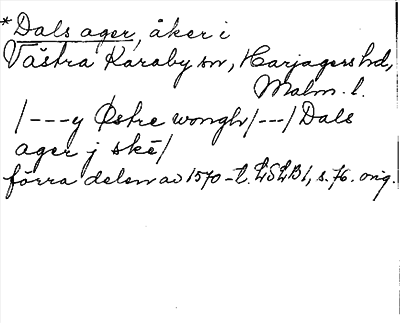 *Dals ager, åker i
Västra Karaby sn, Harjagers hd,
Malm. l.
/---y Østre wongh/---/Dals
ager j skē/
förra delen av 1570-t. LSLB1, s. 76. orig.